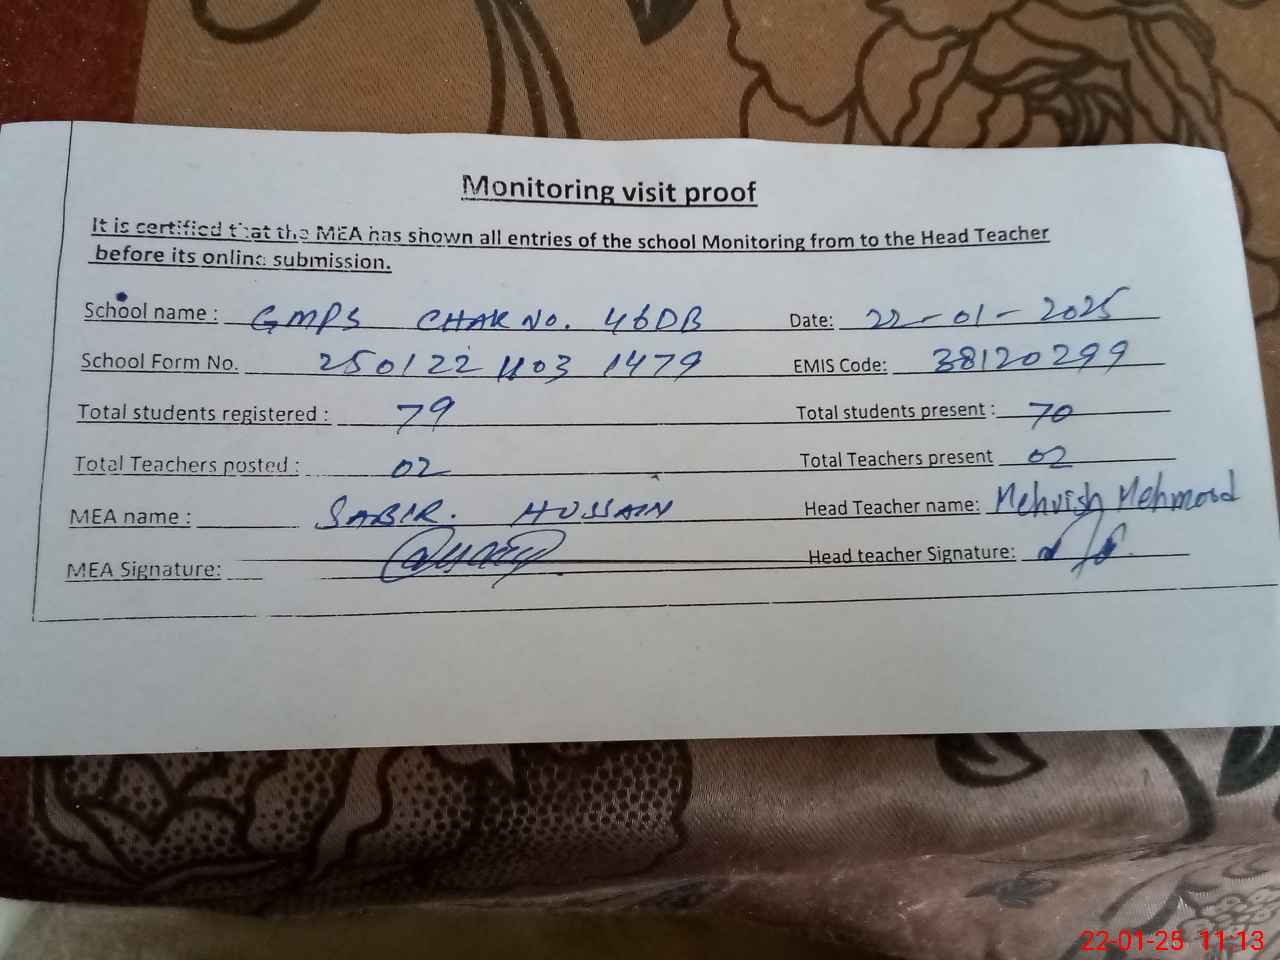 Monitoring visit proof
It is certified that the MEA has shown all entries of the school Monitoring from to the Head Teacher
before its online submission.
School name : GMPS CHAK NO. 46DB Date: 22-01-2025
School Form No. 250122 1103 1479 EMIS Code: 38120299
Total students registered : 79 Total students present : 70
Total Teachers posted : 02 Total Teachers present 02
MEA name : SABIR. HUSSAIN Head Teacher name: Mehvish Mehmood
MEA Signature: Head teacher Signature:
22-01-25 11:13